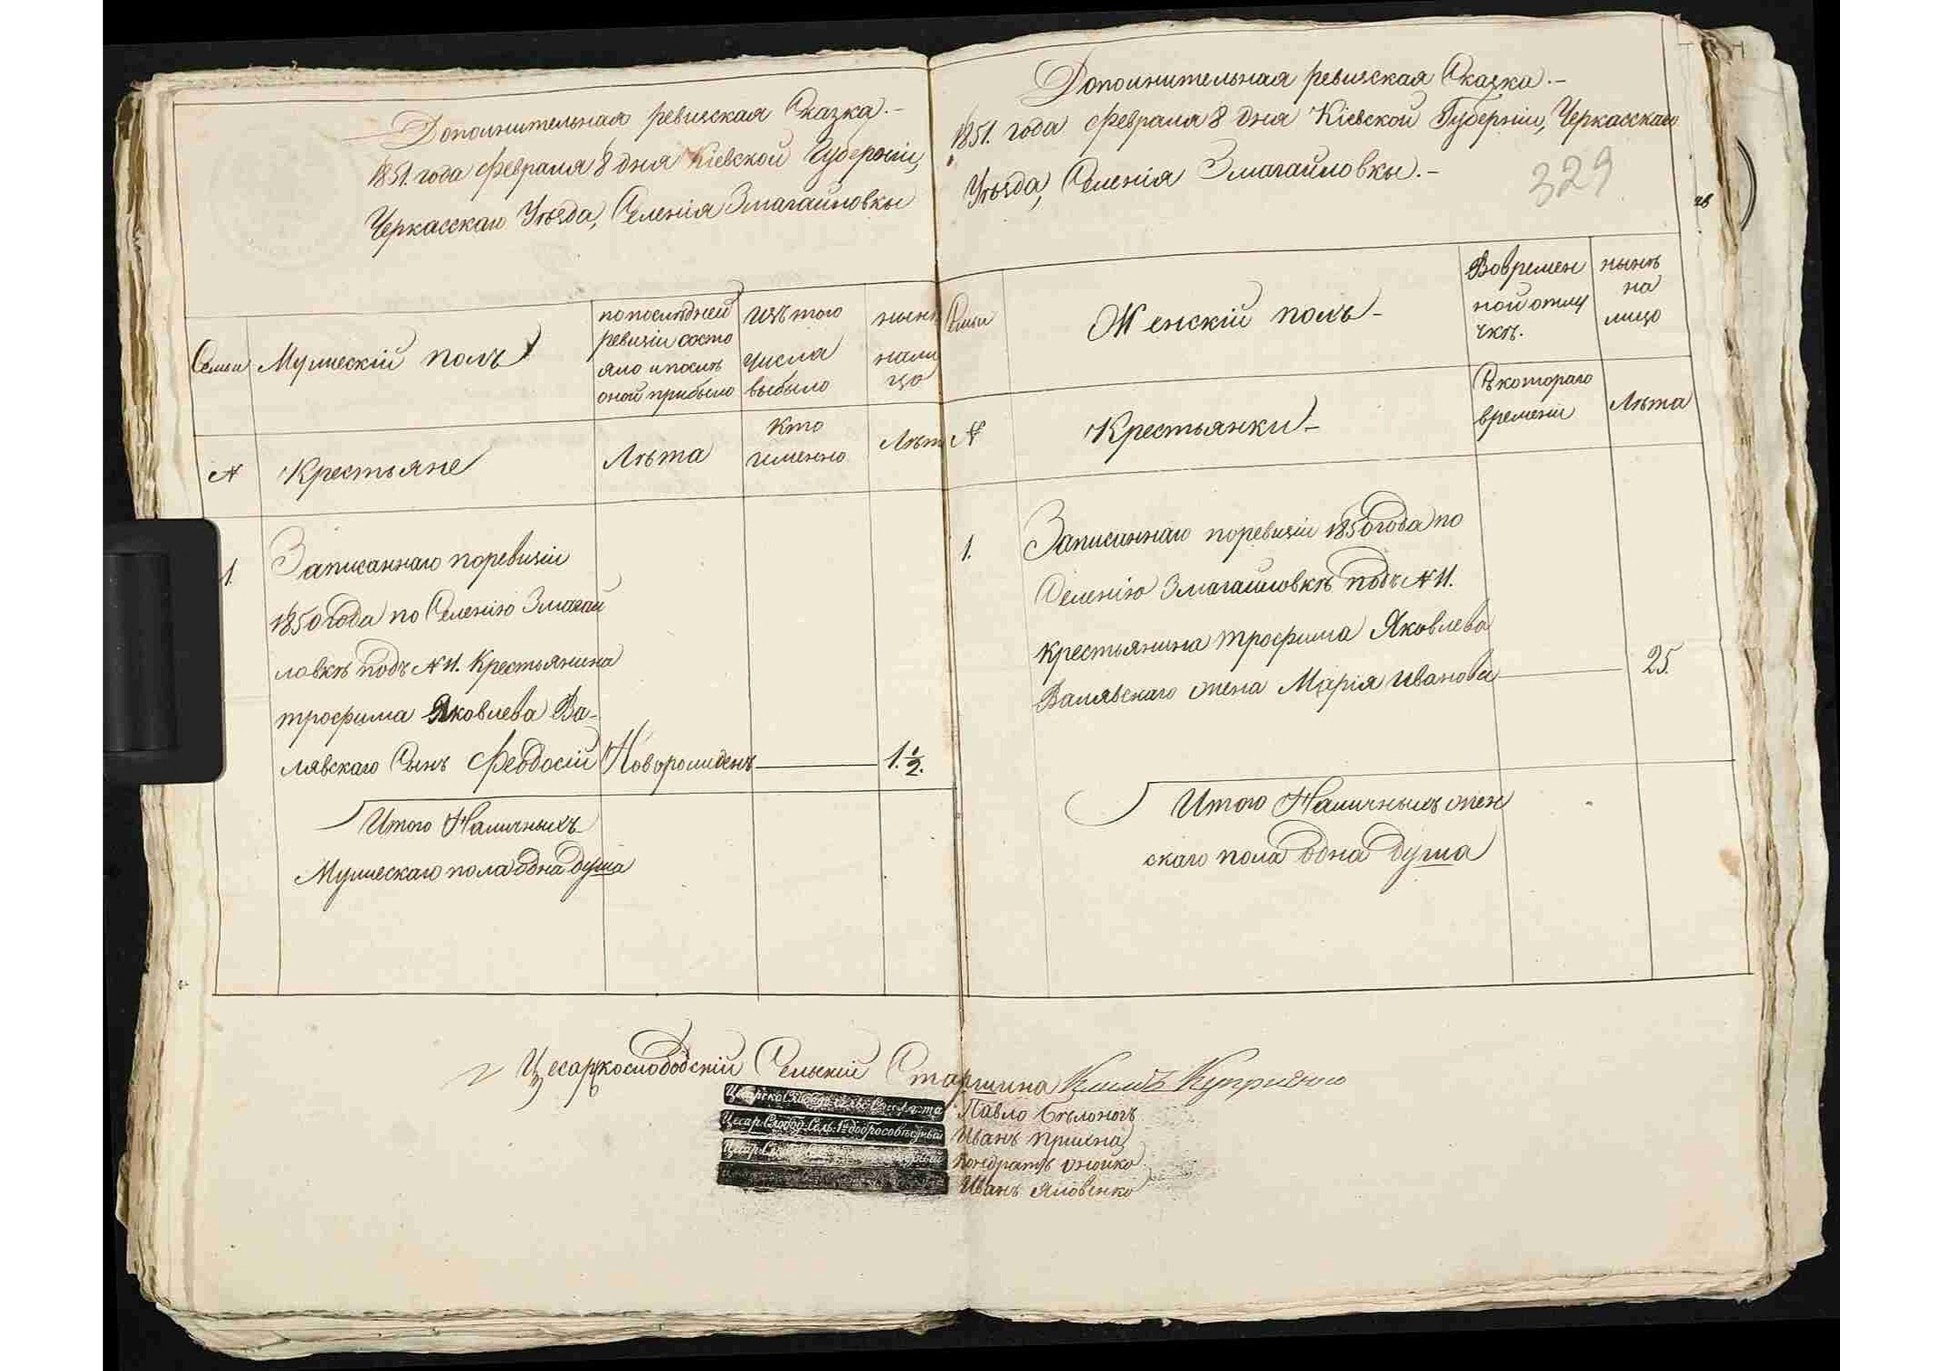 Дополнительная ревизская Сказка.-
1851. года февраля 8 дня Кіевской Губерніи,
Черкасскаго Уѣзда, Селенія Змагайловки
Семьи
Мужескій полъ
по последней
ревизіи состо
яло и послѣ
оной прибыло
Изъ того
числа
выбыло
нынѣ
нали
цо
№
Крестьяне
Лѣта
Кто
именно
Лѣта
1.
Записаннаго поревизіи
1850 года по Селенію Змагай
ловкѣ подъ № 11. Крестьянина
трофима Яковлева Ва-
лявскаго Сынъ Феодосій
Новорожденъ
1. 1/2.
Итого Наличныхъ
Мужескаго пола одна душа
Дополнительная ревизская Сказка.-
1851. года февраля 8 дня Кіевской Губерніи, Черкасскаго
Уѣзда, Селенія Змагайловки.-
329
Семьи
Женскій полъ-
Вовремен
ной отлу
чкѣ.
нынѣ
на
лицо
№
Крестьянки-
Съкотораго
времени
Лѣта
1.
Записаннаго поревизіи 1850 года по
Селенію Змагайловкѣ подъ № 11.
крестьянина трофима Яковлева
Валявскаго жена Марія Иванова
25.
Итого Наличныхъ жен
скаго пола одна душа
Цесаркослободскій Сельскій Старшина Климъ Куприенко
Павло Бѣлоногъ
Цесар. Слобод. Сел. 1й добросовѣстный Иванъ
Кондратъ
Иванъ Яловенко